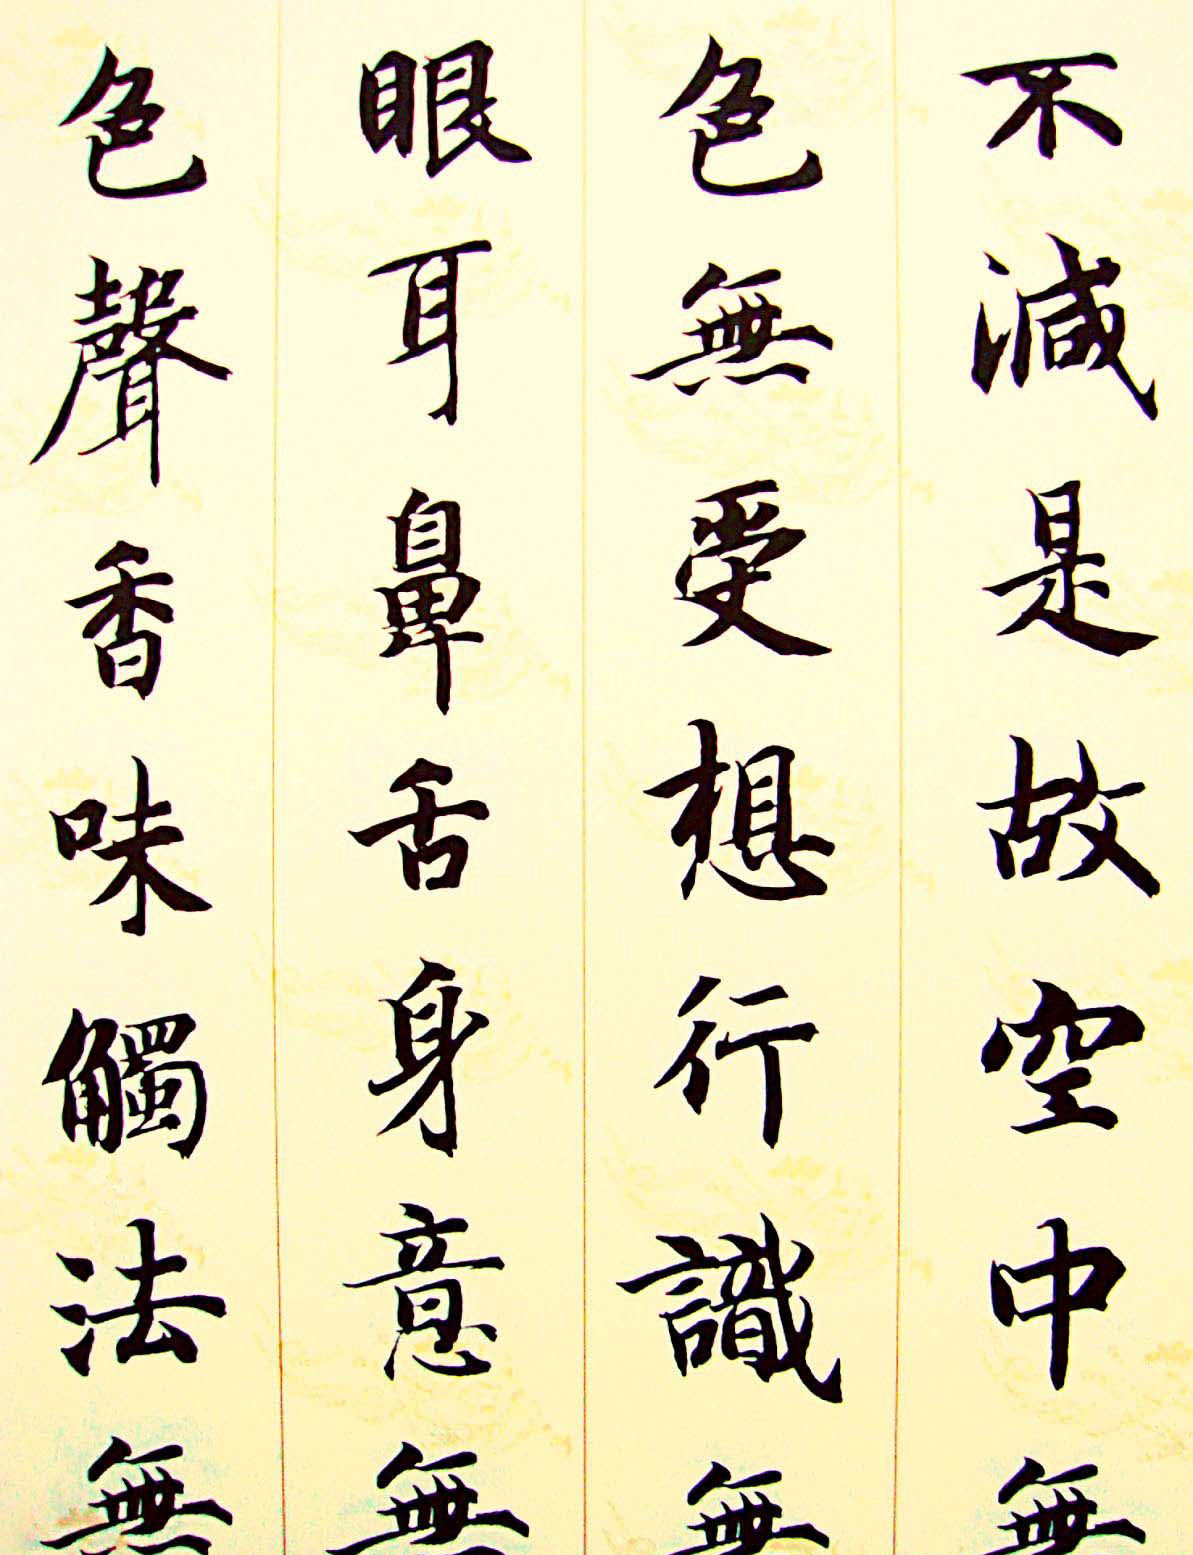 不減是故空中無
色無受想行識無
眼耳鼻舌身意無
色聲香味觸法無